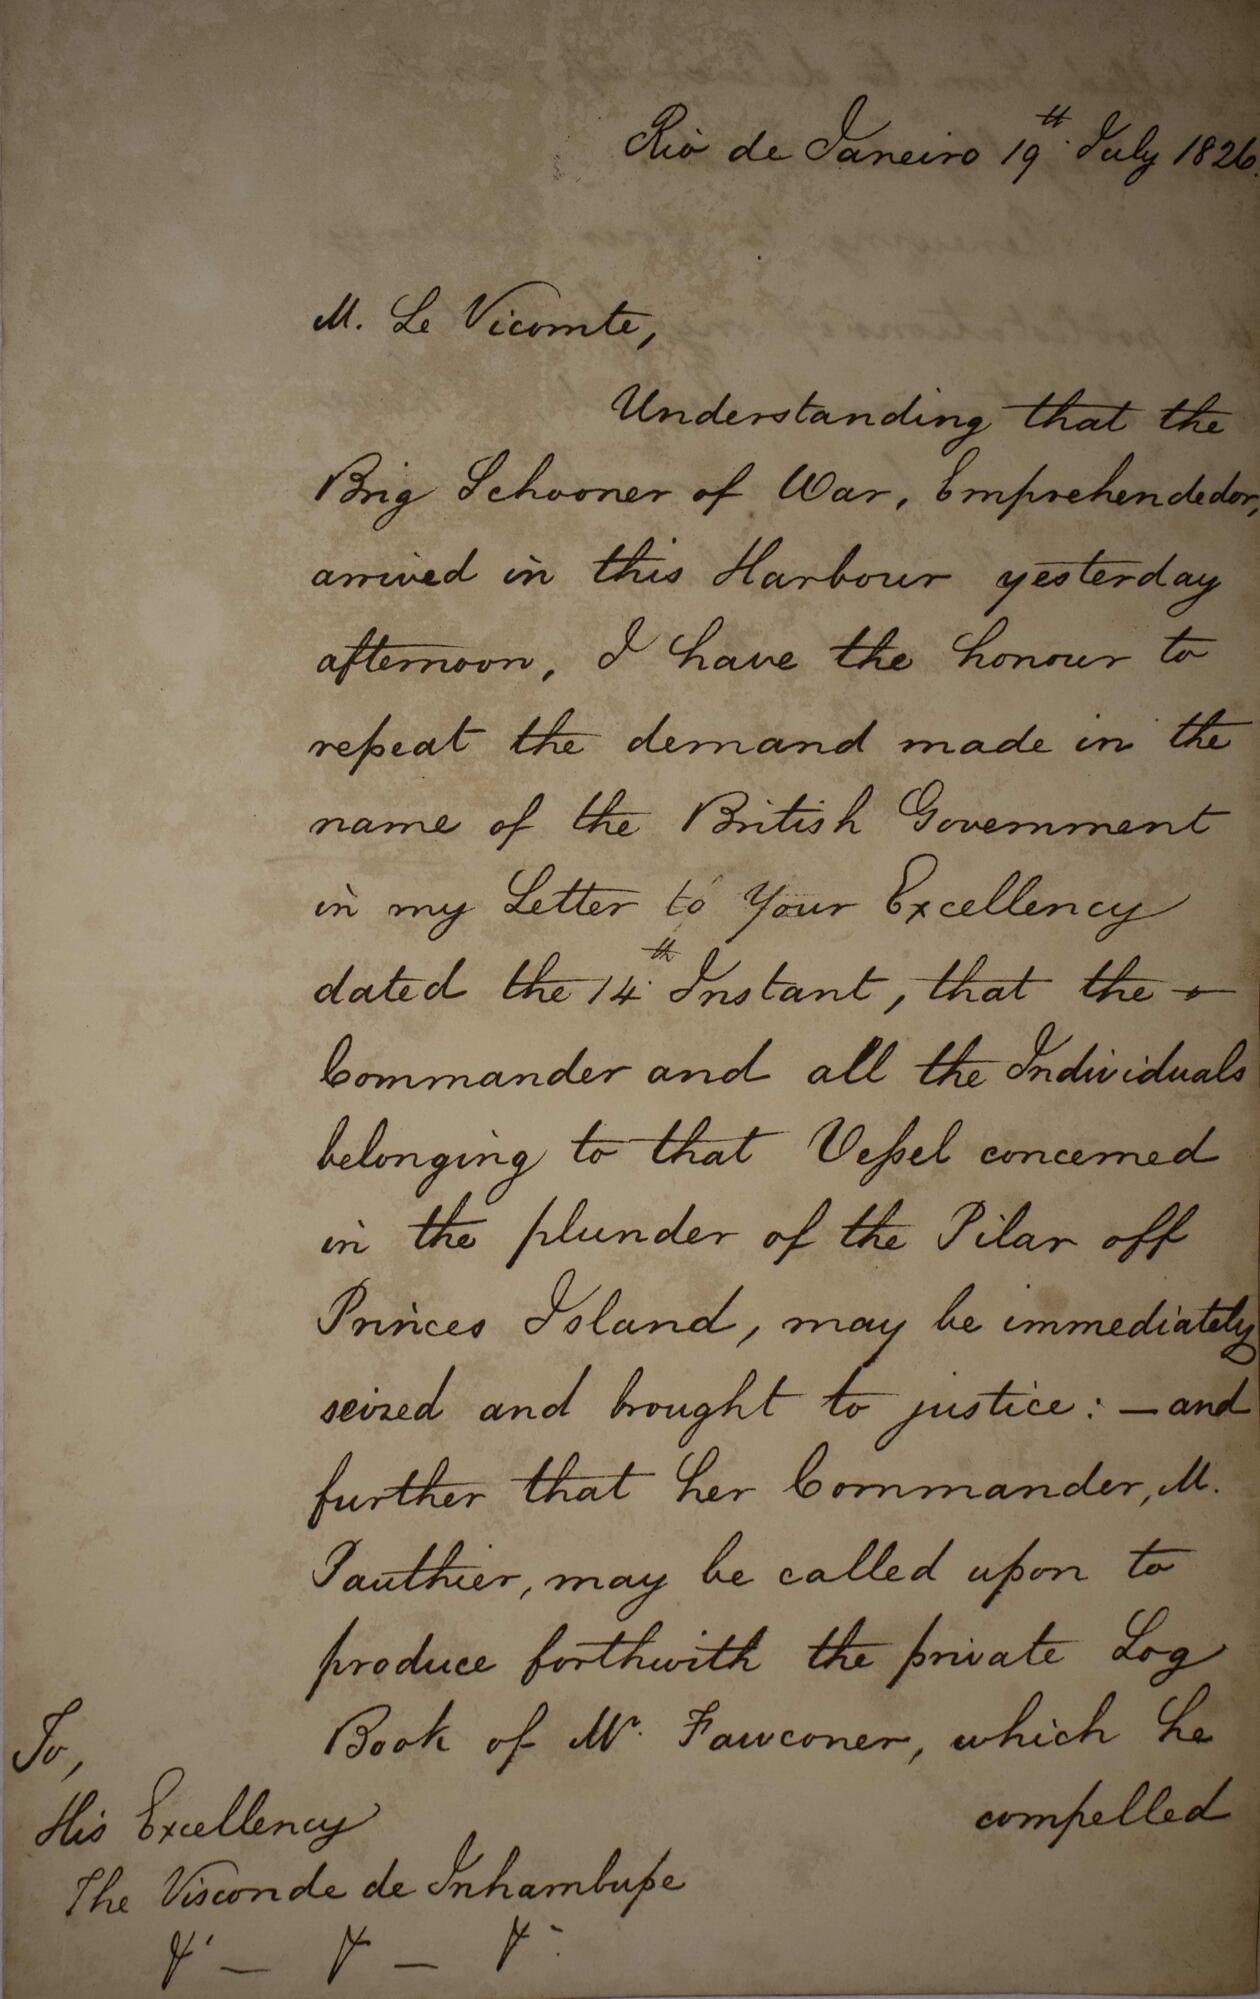 Rio de Janeiro 19th July 1826.
M. Le Vicomte,
Understanding that the
Brig Schooner of War, Emprehendedor,
arrived in this Harbour yesterday
afternoon, I have the honour to
repeat the demand made in the
name of the British Government
in my Letter to Your Excellency
dated the 14th Instant, that the
Commander and all the Individuals
belonging to that Vessel concerned
in the plunder of the Pilar off
Princes Island, may be immediately
seized and brought to justice: — and
further that her Commander, M.
Pauthier, may be called upon to
produce forthwith the private Log
Book of Mr. Fawconer, which he
compelled
To,
His Excellency
The Visconde de Inhambupe